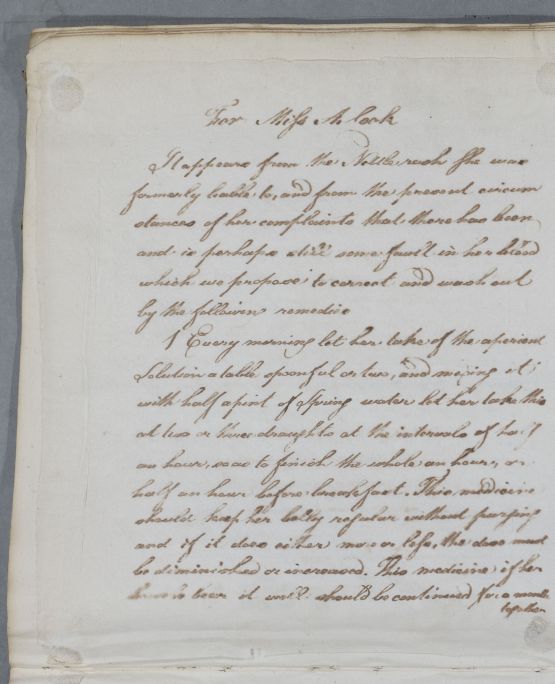 For Miss A cock
It appears from the Nettle rash She was
formerly liable to, and from the present circum
stances of her complaints that there has been
and is perhaps still some fault in her blood
which we propose to correct and wash out
by the following remedies
1 Every morning let her take of the aperient
Solution a table spoonful or two, and mixing it
with half a pint of Spring water let her take this
at two or three draughts at the intervals of half
an hour, so as to finish the whole an hour, or
half an hour before breakfast. This medicine
should keep her belly regular without purging
and if it does either more or less, the dose must
be diminished or increased. This medicine if her
to bear it well should be continued for a month
together